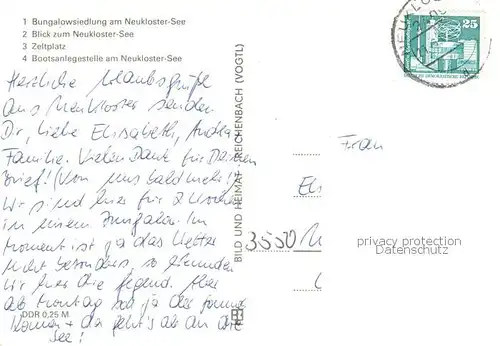 1 Bungalowsiedlung am Neukloster-See
2 Blick zum Neukloster-See
3 Zeltplatz
4 Bootsanlegestelle am Neukloster-See
Herzliche Urlaubsgrüße
aus Neukloster senden
Dir, liebe Elisabeth,
Familie. Vielen Dank für Deinen
Brief! (Von uns bald mehr!)
Wir sind hier für 2 Wochen
in einem Bungalow. Im
Moment ist ja das Wetter
nicht besonders, so
wir hier die Gegend. Aber
ab Montag soll ja die Sonne
kommen + da geht's ab an die
See!
DDR 0,25 M
BILD UND HEIMAT REICHENBACH (VOGTL)
25
Frau
3550
privacy protection
Datenschutz